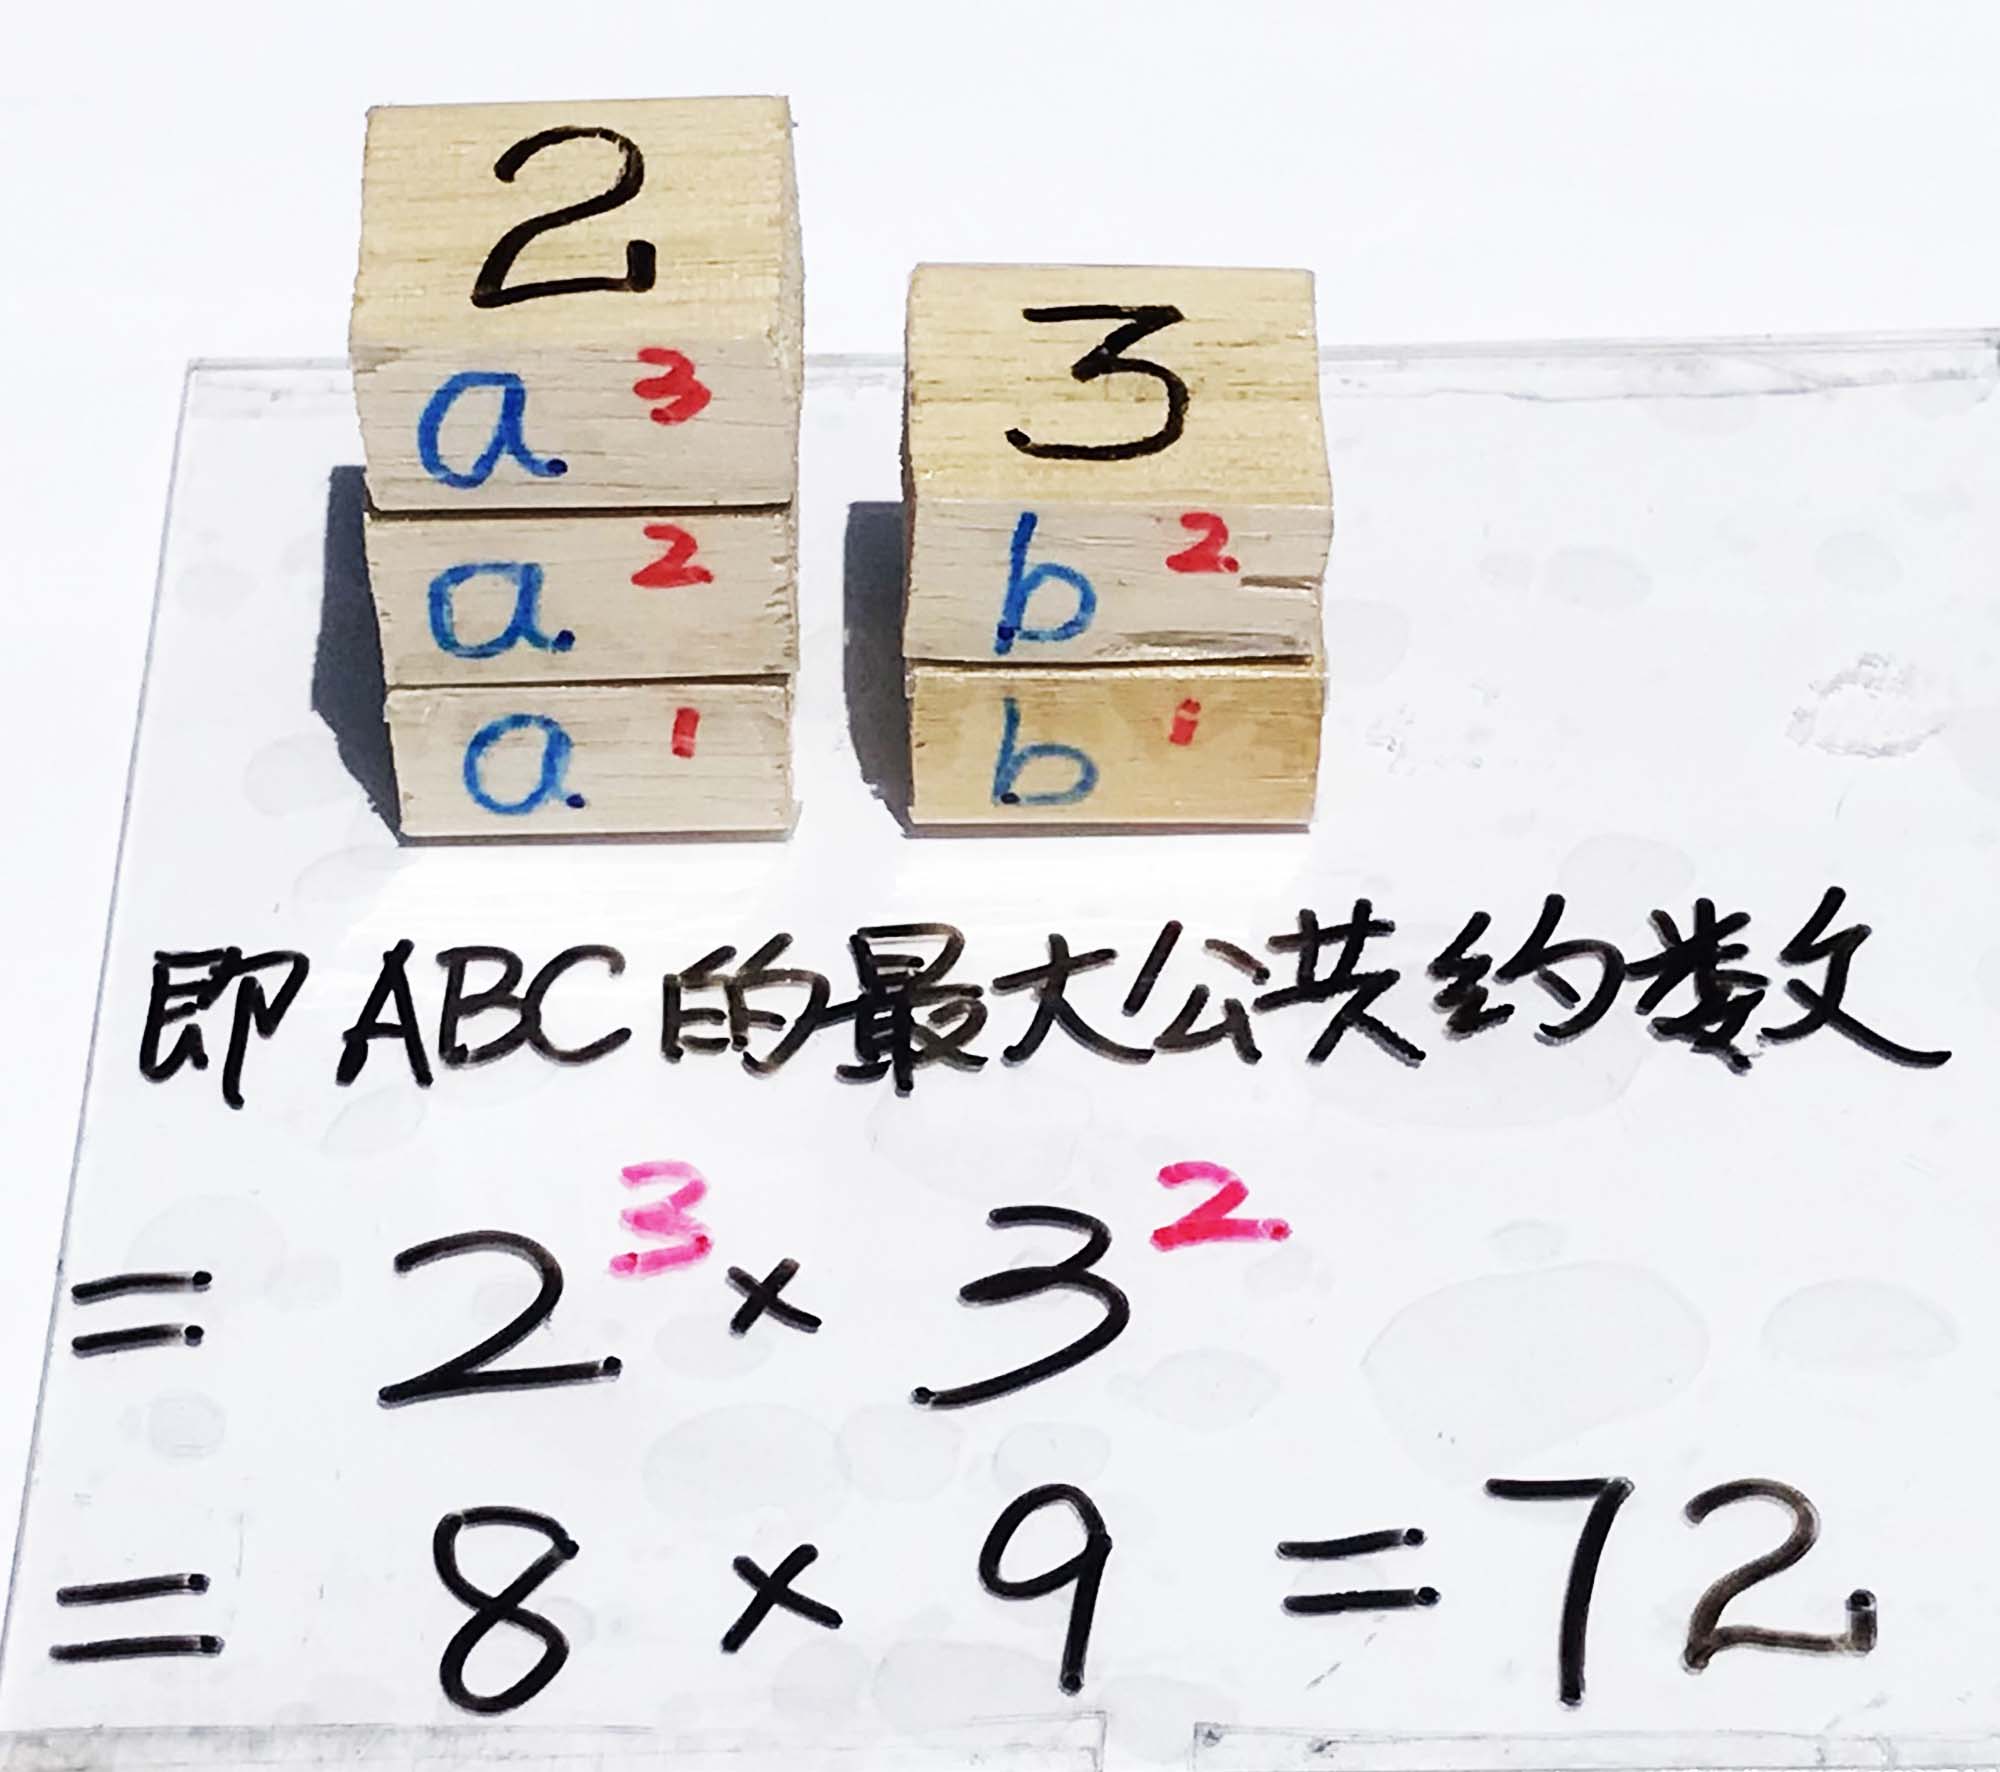 2
a 3
a 2
a 1
3
b 2
b 1
即ABC的最大公共约数
= 2³ × 3²
= 8 × 9 = 72